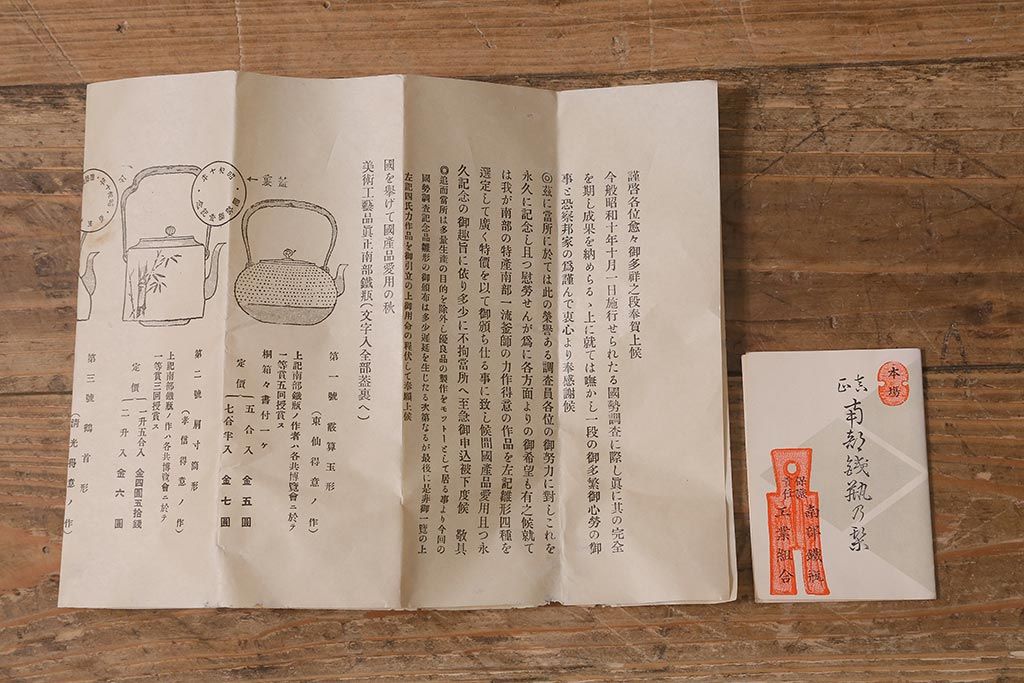 謹啓各位愈々御多祥之段奉賀上候
今般昭和十年十月一日施行せられたる國勢調査に際し眞に其の完全
を期し成果を納めらるゝ上に就ては嘸かし一段の御多繁御心勞の御
事と恐察邦家の爲謹んで衷心より奉感謝候
◎茲に當所に於ては此の榮譽ある調査員各位の御努力に對しこれを
永久に記念し且つ慰勞せんが爲に各方面よりの御希望も有之候就て
は我が南部の特產南部一流釜師の力作得意の作品を左記雛形四種を
選定して廣く特價を以て御頒ち仕る事に致し候間國產品愛用且つ永
久記念の御趣旨に依り多少に不拘當所へ至急御申込被下度候 敬具
◎追而當所は多量生產の目的を除外し優良品の製作をモットーとして居る事より今回の
國勢調査記念品雛形の御頒布は多少遲延を生じたる次第なるが最後に是非御一覽の上
左記四氏力作品を御引立の上御用命の程伏して奉願上候
國を擧げて國產品愛用の秋
美術工藝品眞正南部鐵瓶(文字入全部蓋裏へ)
蓋裏
第一號 霰算玉形
(東仙得意ノ作)
上記南部鐵瓶ノ作者ハ各共博覽會ニ於テ
一等賞五回授賞ス
桐箱々書付一ケ
定價
五合入 金五圓
七合半入 金七圓
第二號 肩寸筒形
(孝信得意ノ作)
上記南部鐵瓶ノ作ハ各共博覽會ニ於テ
一等賞三回授賞ス
定價
一升五合入 金四圓五拾錢
二升入 金六圓
第三號 鶴首形
(清光得意ノ作)
本場
眞正
南部鐵瓶乃栞
保證
責任
南部鐵瓶
工業組合